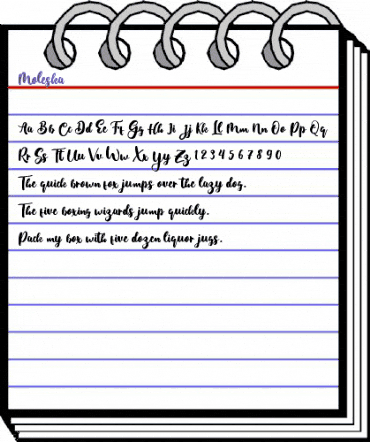 Moleska
Aa Bb Cc Dd Ee Ff Gg Hh Ii Jj Kk Ll Mm Nn Oo Pp Qq
Rr Ss Tt Uu Vv Ww Xx Yy Zz 1 2 3 4 5 6 7 8 9 0
The quick brown fox jumps over the lazy dog.
The five boxing wizards jump quickly.
Pack my box with five dozen liquor jugs.